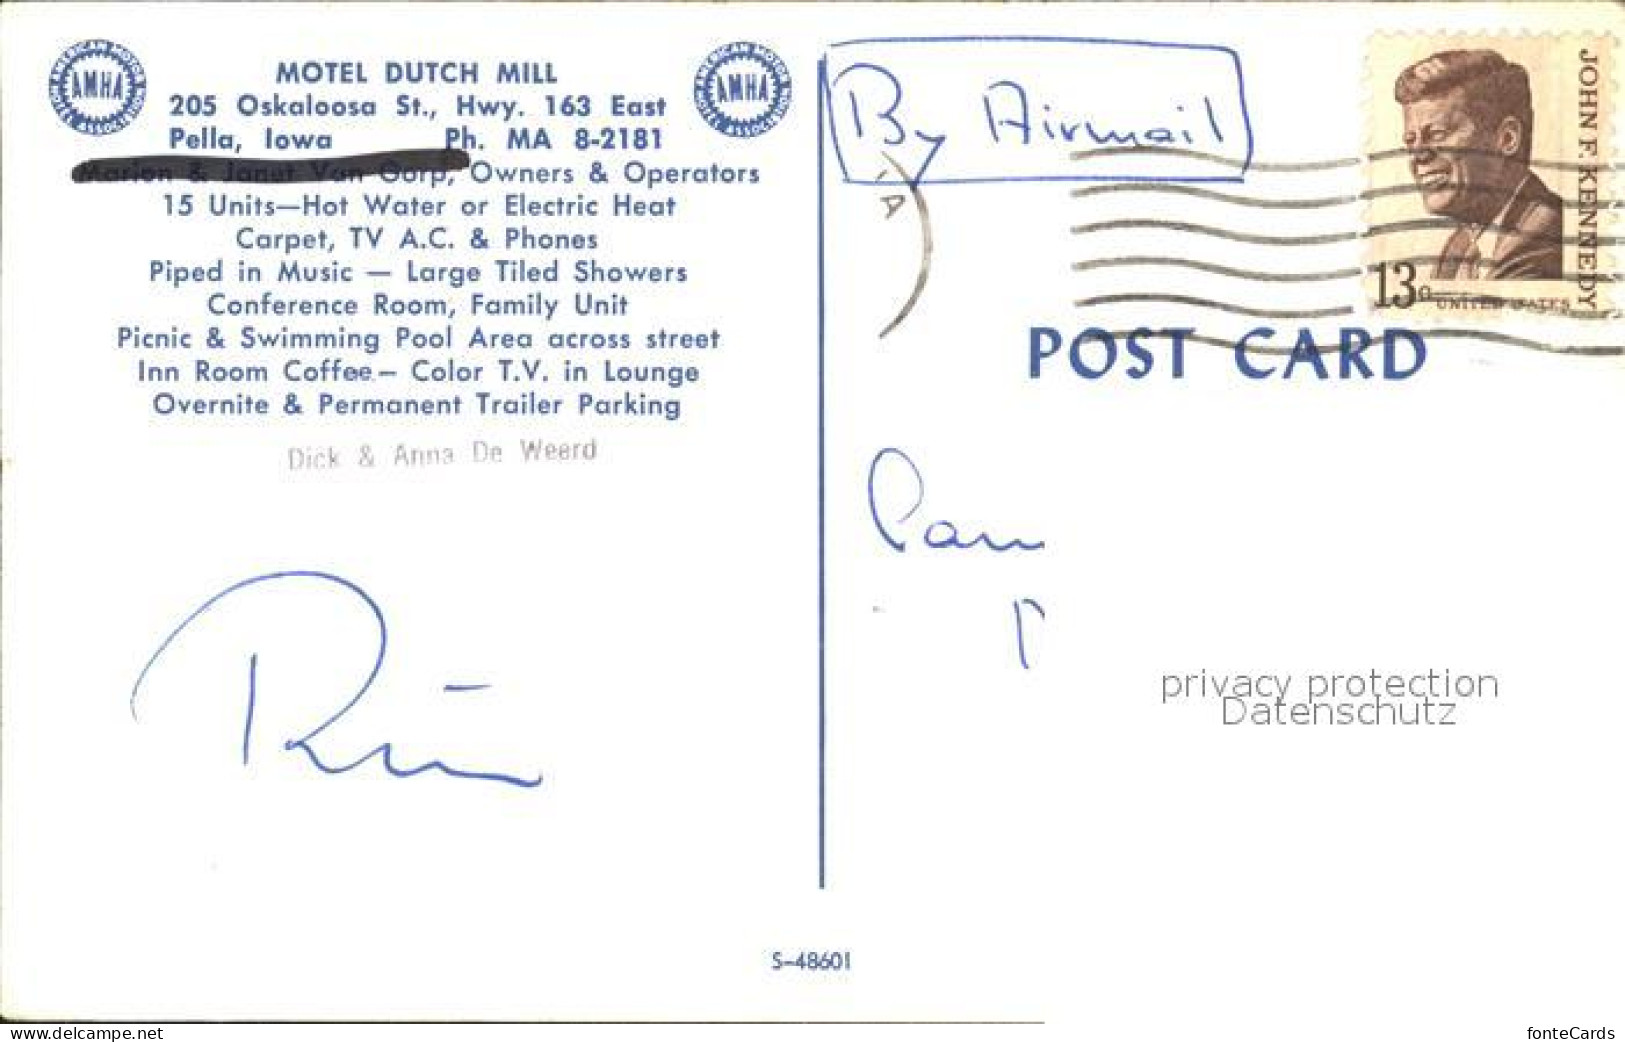 MOTEL DUTCH MILL
205 Oskaloosa St., Hwy. 163 East
Pella, Iowa Ph. MA 8-2181
Marion & Janet Van Gorp, Owners & Operators
15 Units—Hot Water or Electric Heat
Carpet, TV A.C. & Phones
Piped in Music — Large Tiled Showers
Conference Room, Family Unit
Picnic & Swimming Pool Area across street
Inn Room Coffee — Color T.V. in Lounge
Overnite & Permanent Trailer Parking
Dick & Anna De Weerd
AMERICAN MOTOR HOTEL ASSOCIATION
AMHA
AMERICAN MOTOR HOTEL ASSOCIATION
AMHA
By Airmail
JOHN F. KENNEDY
13c UNITED STATES
POST CARD
privacy protection
Datenschutz
S-48601
www.delcampe.net
fonteCards